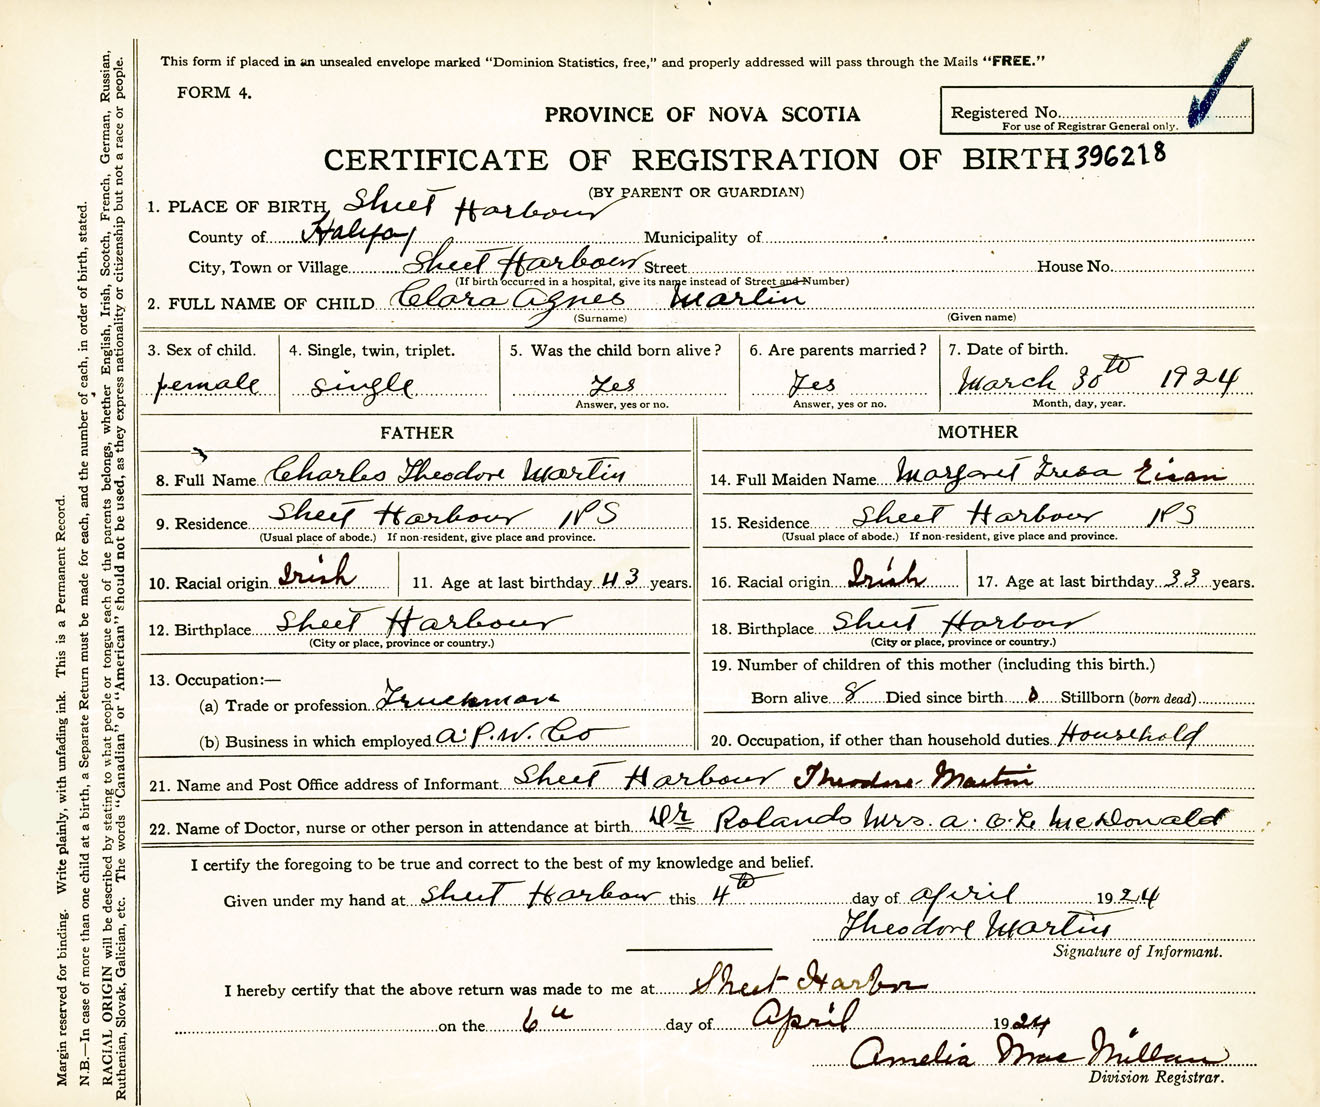 This form if placed in an unsealed envelope marked "Dominion Statistics, free," and properly addressed will pass through the Mails "FREE."
FORM 4.
PROVINCE OF NOVA SCOTIA
Registered No.
For use of Registrar General only.
CERTIFICATE OF REGISTRATION OF BIRTH 396218
(BY PARENT OR GUARDIAN)
1. PLACE OF BIRTH Sheet Harbour
County of Halifax Municipality of
City, Town or Village Sheet Harbour Street House No.
(If birth occurred in a hospital, give its name instead of Street and Number)
2. FULL NAME OF CHILD Clara Agnes Martin
(Surname) (Given name)
3. Sex of child. 4. Single, twin, triplet. 5. Was the child born alive? 6. Are parents married? 7. Date of birth.
female single Yes Yes March 30th 1924
Answer, yes or no. Answer, yes or no. Month, day, year.
FATHER MOTHER
8. Full Name Charles Theodore Martin 14. Full Maiden Name Margaret Tresa Eisan
9. Residence Sheet Harbour NS 15. Residence Sheet Harbour NS
(Usual place of abode.) If non-resident, give place and province. (Usual place of abode.) If non-resident, give place and province.
10. Racial origin Irish 11. Age at last birthday 43 years. 16. Racial origin Irish 17. Age at last birthday 33 years.
12. Birthplace Sheet Harbour 18. Birthplace Sheet Harbour
(City or place, province or country.) (City or place, province or country.)
13. Occupation:— 19. Number of children of this mother (including this birth.)
(a) Trade or profession Truckman Born alive 8 Died since birth 0 Stillborn (born dead)
(b) Business in which employed A.P.W. Co 20. Occupation, if other than household duties Household
21. Name and Post Office address of Informant Sheet Harbour Theodore Martin
22. Name of Doctor, nurse or other person in attendance at birth Dr Rolands Mrs. A. McDonald
I certify the foregoing to be true and correct to the best of my knowledge and belief.
Given under my hand at Sheet Harbour this 4th day of April 1924
Theodore Martin
Signature of Informant.
I hereby certify that the above return was made to me at Sheet Harbor
on the 6th day of April 1924
Amelia MacMillan
Division Registrar.
Margin reserved for binding. Write plainly, with unfading ink. This is a Permanent Record.
N.B.—In case of more than one child at a birth, a Separate Return must be made for each, and the number of each, in order of birth, stated.
RACIAL ORIGIN will be described by stating to what people or tongue each of the parents belongs, whether English, Irish, Scotch, French, German, Russian,
Ruthenian, Slovak, Galician, etc. The words "Canadian" or "American" should not be used, as they express nationality or citizenship but not a race or people.